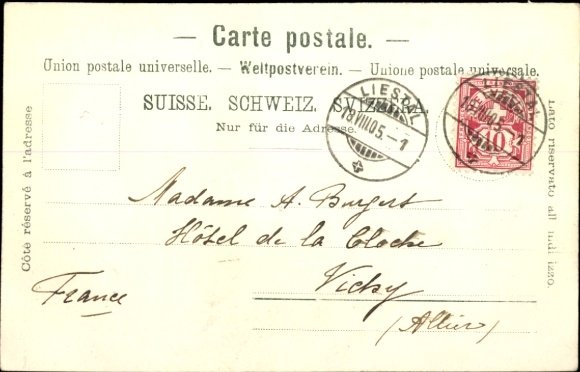 — Carte postale. —
Union postale universelle. — Weltpostverein. — Unione postale universale.
SUISSE. SCHWEIZ. SVIZZERA.
Nur für die Adresse.
Côté réservé à l'adresse
Lato riservato all' indirizzo.
LIESTAL
18.VIII.05.–1
LIESTAL
18.VIII.05.–1
10
Madame A. Burgert
Hôtel de la Cloche
Vichy
France
(Allier)